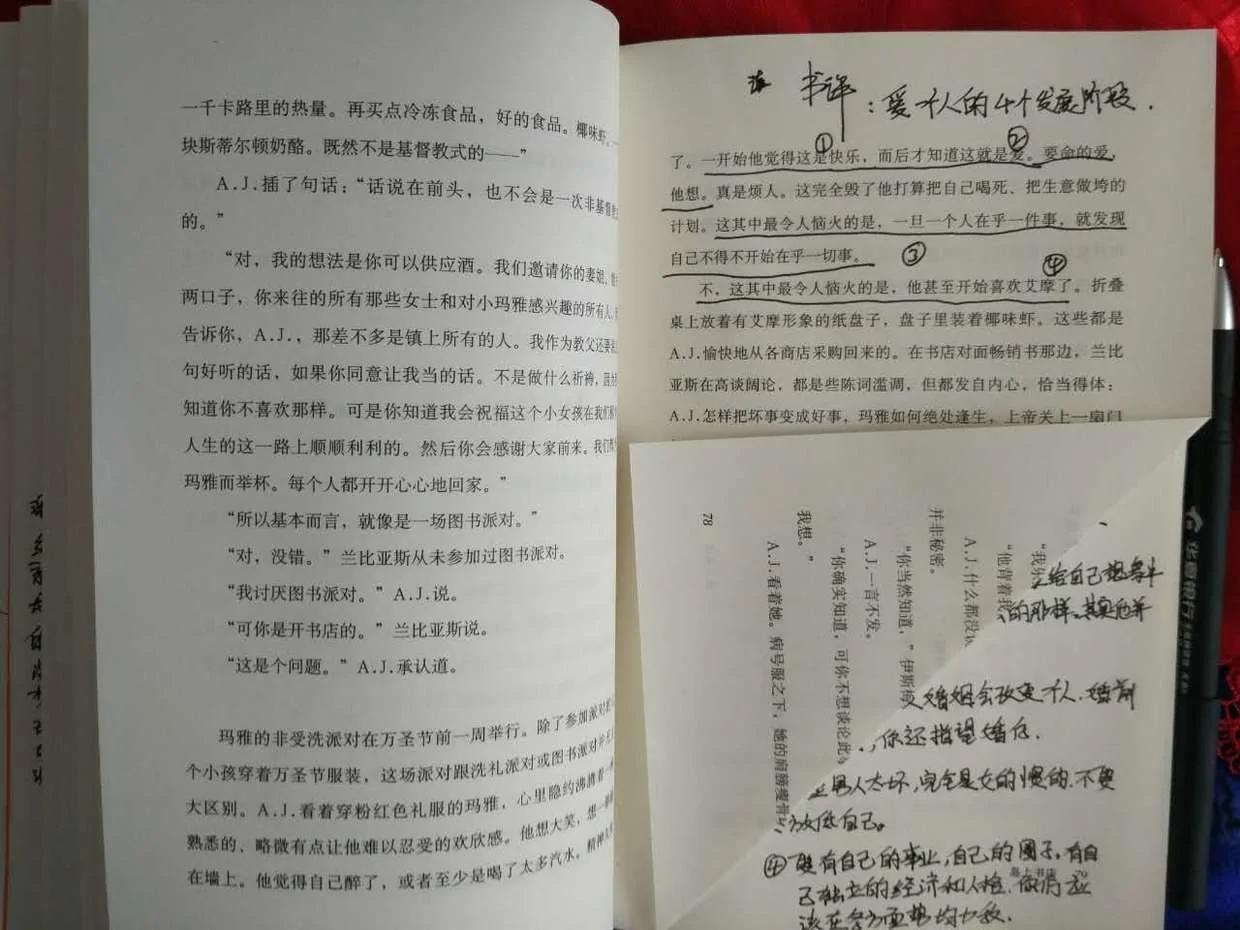 一千卡路里的热量。再买点冷冻食品，好的食品。椰味虾。一
块斯蒂尔顿奶酪。既然不是基督教式的——”
A.J.插了句话：“话说在前头，也不会是一次非基督教
的。”
“对，我的想法是你可以供应酒。我们邀请你的妻姐，
两口子，你来往的所有那些女士和对小玛雅感兴趣的所有人，
告诉你，A.J.，那差不多是镇上所有的人。我作为教父还要
句好听的话，如果你同意让我当的话。不是做什么祈祷，
知道你不喜欢那样。可是你知道我会祝福这个小女孩在我们
人生的这一路上顺顺利利的。然后你会感谢大家前来。我们
玛雅而举杯。每个人都开开心心地回家。”
“所以基本而言，就像是一场图书派对。”
“对，没错。”兰比亚斯从未参加过图书派对。
“我讨厌图书派对。”A.J.说。
“可你是开书店的。”兰比亚斯说。
“这是个问题。”A.J.承认道。
玛雅的非受洗派对在万圣节前一周举行。除了参加派对的
个小孩穿着万圣节服装，这场派对跟洗礼派对或图书派对并无
大区别。A.J.看着穿粉红色礼服的玛雅，心里隐约沸腾着一
熟悉的、略微有点让他难以忍受的欢欣感。他想大笑，想一
在墙上。他觉得自己醉了，或者至少是喝了太多汽水。精神
书评：爱一个人的4个发展阶段.
① ②
了。一开始他觉得这是快乐，而后才知道这就是爱。要命的爱，
他想。真是烦人。这完全毁了他打算把自己喝死、把生意做垮的
计划。这其中最令人恼火的是，一旦一个人在乎一件事，就发现
自己不得不开始在乎一切事。 ③
④
不，这其中最令人恼火的是，他甚至开始喜欢艾摩了。折叠
桌上放着有艾摩形象的纸盘子，盘子里装着椰味虾。这些都是
A.J.愉快地从各商店采购回来的。在书店对面畅销书那边，兰比
亚斯在高谈阔论，都是些陈词滥调，但都发自内心，恰当得体：
A.J.怎样把坏事变成好事，玛雅如何绝处逢生，上帝关上一扇门
“我
“他背着我
A.J.什么都没
并非秘密。
“你当然知道，”伊斯梅
A.J.一言不发。
“你确实知道，可你不想谈论此
我想。”
A.J.看着她。病号服之下，她的肩膀瘦骨
78
给自己想象中
的那样。其实他并
婚姻会改变一个人.婚前
你还指望婚后.
男人太坏,完全是女的惯的.不要
放低自己。
④要有自己的事业,自己的圈子,有自
己独立的经济和人格.
该在各方面势均力敌.
岛上书店
华夏银行